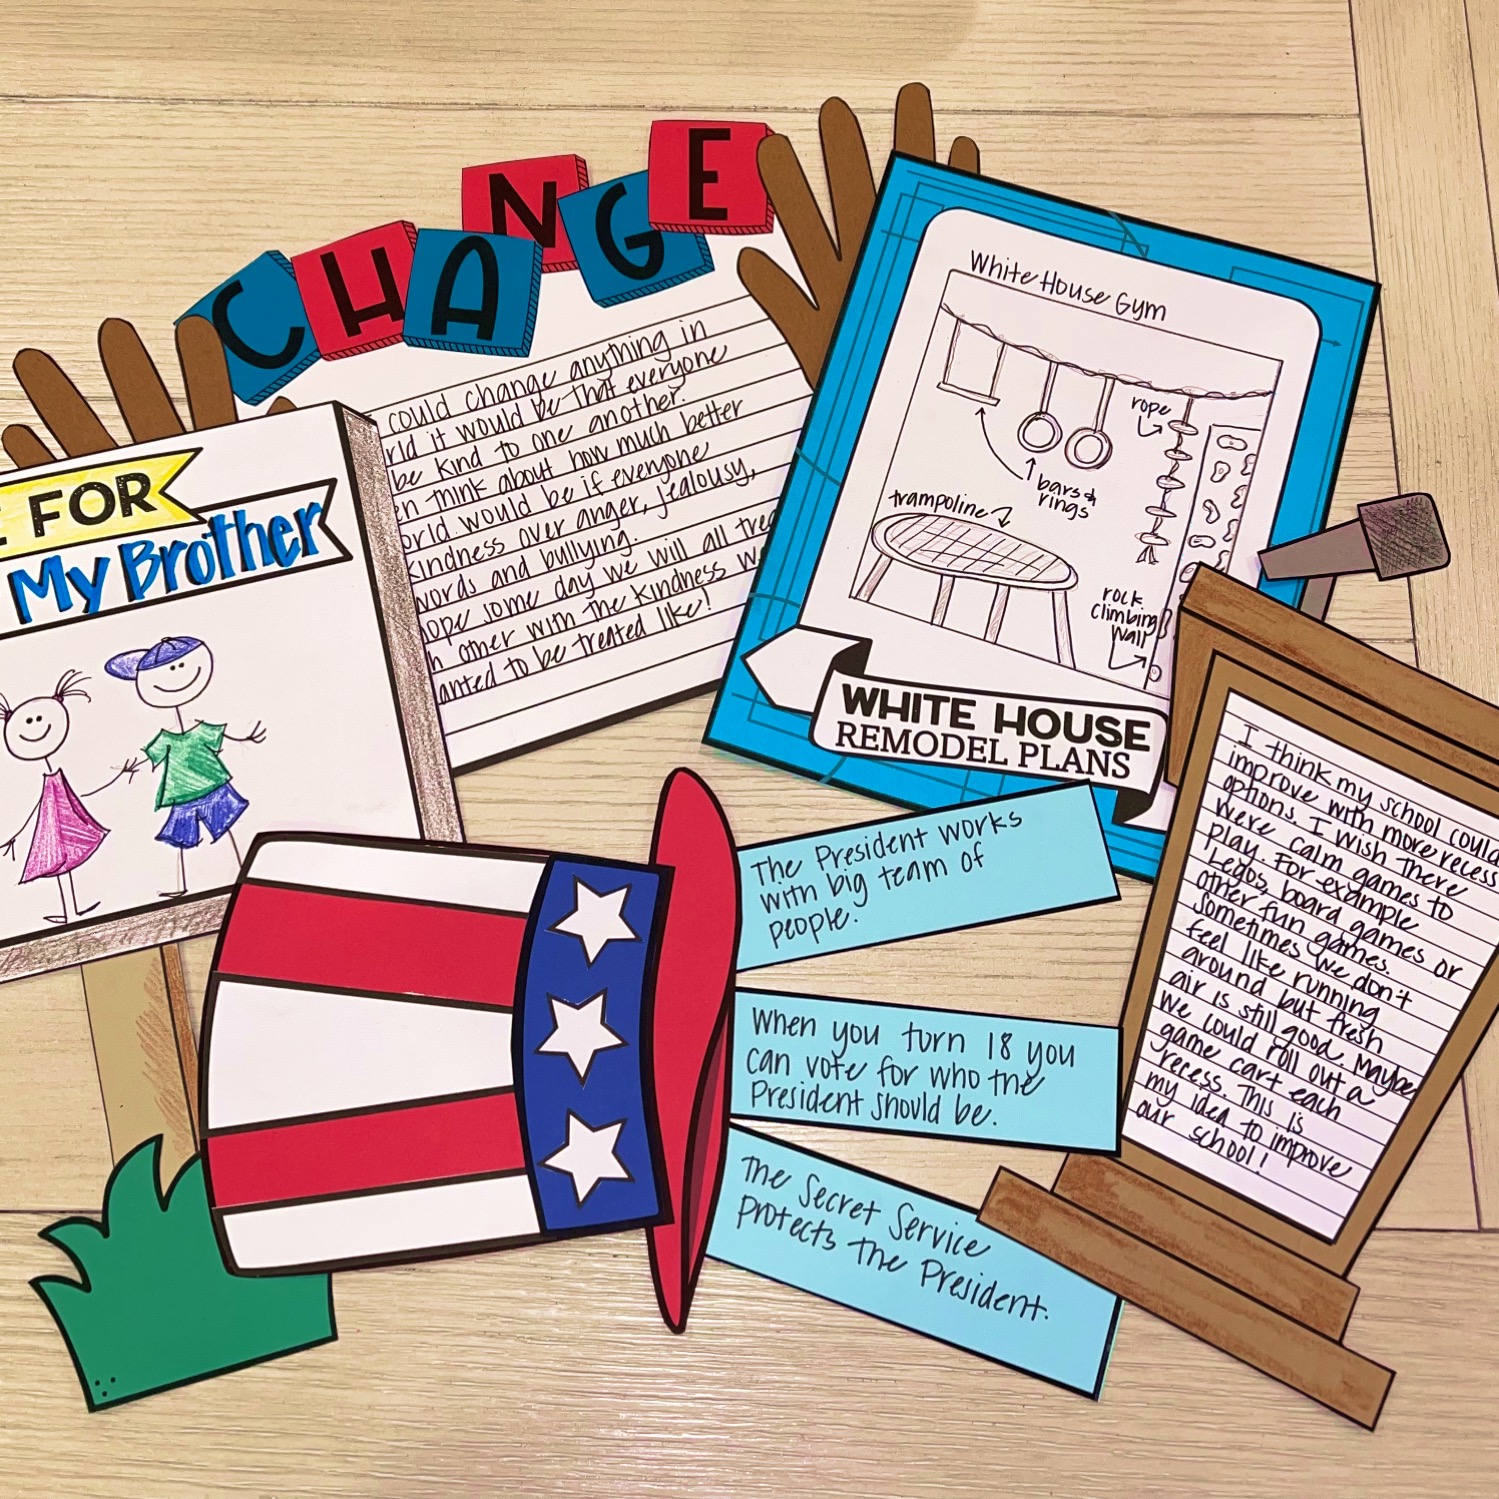 CHANGE
could change anything in
rld it would be that everyone
be kind to one another.
en think about how much better
orld would be if everyone
kindness over anger, jealousy,
words and bullying.
hope some day we will all trea
h other with the kindness w
anted to be treated like!
E FOR
My Brother
White House Gym
rope
bars &
rings
trampoline
rock
climbing
wall
WHITE HOUSE
REMODEL PLANS
The President works
with big team of
people.
When you turn 18 you
can vote for who the
President should be.
The Secret Service
protects the President.
I think my school could
improve with more recess
options. I wish there
were calm games to
play. For example
Legos, board games or
other fun games.
Sometimes we don't
feel like running
around but fresh
air is still good. Maybe
we could roll out a
game cart each
recess. This is
my idea to improve
our school!